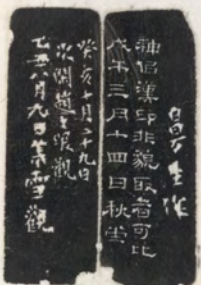 曼生作
神佀漢印非貌取者可比
戊午三月十四日秋堂
癸亥十月二十九日
次閑趙之琛觀
乙丑八月九日雪觀